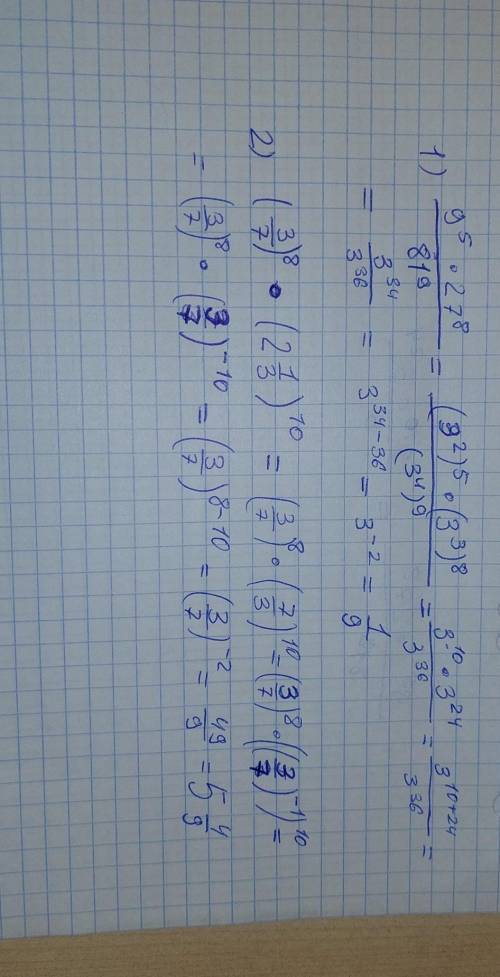 1) 9⁵ · 27⁸ / 81⁹ = (3²)⁵ · (3³)⁸ / (3⁴)⁹ = 3¹⁰ · 3²⁴ / 3³⁶ = 3¹⁰⁺²⁴ / 3³⁶ =
= 3³⁴ / 3³⁶ = 3³⁴⁻³⁶ = 3⁻² = 1/9
2) (3/7)⁸ · (2 1/3)¹⁰ = (3/7)⁸ · (7/3)¹⁰ = (3/7)⁸ · ((3/7)⁻¹)¹⁰ =
= (3/7)⁸ · (3/7)⁻¹⁰ = (3/7)⁸⁻¹⁰ = (3/7)⁻² = 49/9 = 5 4/9